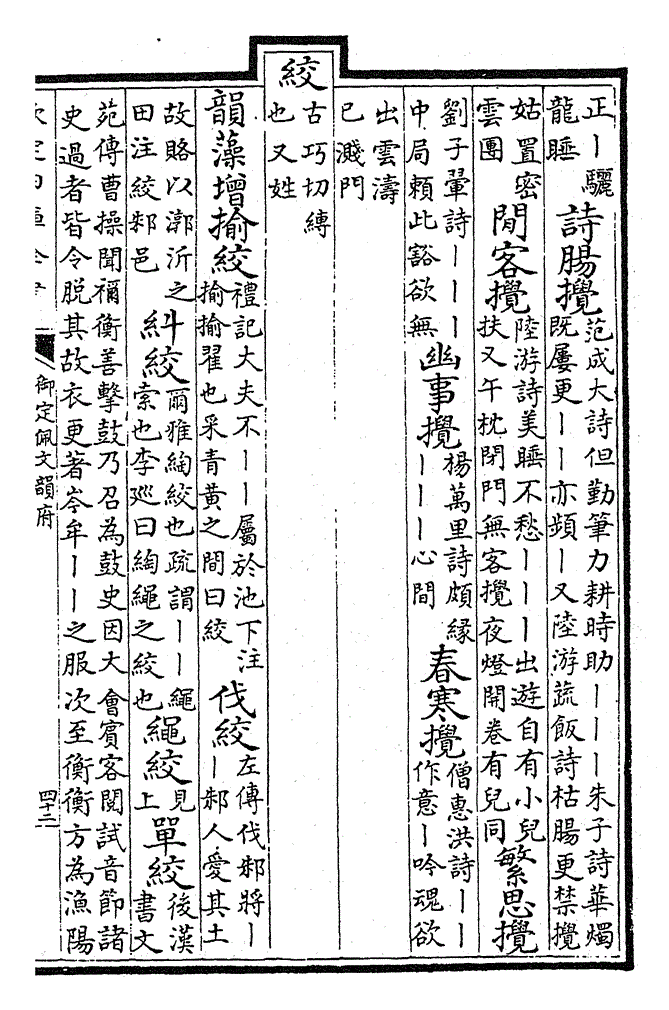 正｜驪龍睡 詩腸攪 范成大詩但勤筆力耕時助｜｜｜朱子詩華燭既屢更｜｜亦頻｜又陸游蔬飯詩枯腸更禁攪
姑置密雲團 閒客攪 陸游詩美睡不愁｜｜｜出遊自有小兒扶又午枕閉門無客攪夜燈開卷有兒同 繁思攪
劉子翬詩｜｜｜中局頼此豁欲無 幽事攪 楊萬里詩頗緣｜｜｜心間 春寒攪 僧惠洪詩｜｜作意｜吟魂欲
出雲濤已濺門
絞 古巧切縛也又姓
韻藻增揄絞 禮記大夫不｜｜屬於池下注揄揄翟也采青黄之間曰絞 伐絞 左傳伐邾將｜｜邾人愛其土
故賂以漷沂之田注絞邾邑 糾絞 爾雅綯絞也疏謂｜｜繩索也李廵曰綯繩之絞也 繩絞 見上 單絞 後漢書文
苑傳曹操聞禰衡善擊鼓乃召為鼓史因大會賓客閲試音節諸史過者皆令脱其故衣更著岑牟｜｜之服次至衡衡方為漁陽
御定佩文韻府
四十二